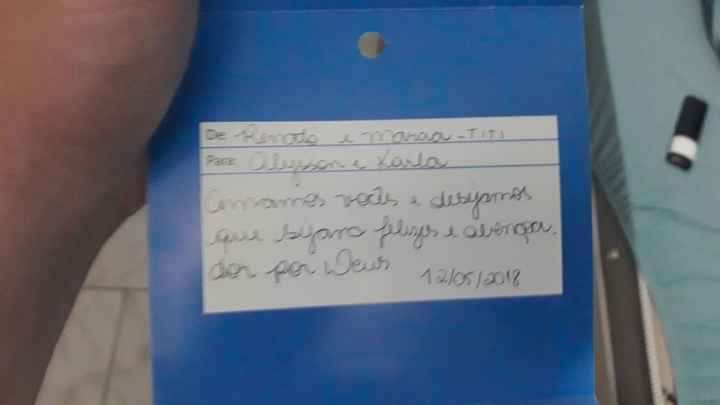 De: Renado e Maraa - TITI
Para: Alysson e Karla
Amamos vocês e desejamos
que sejam felizes e abençoa-
dos por Deus
12/05/2018